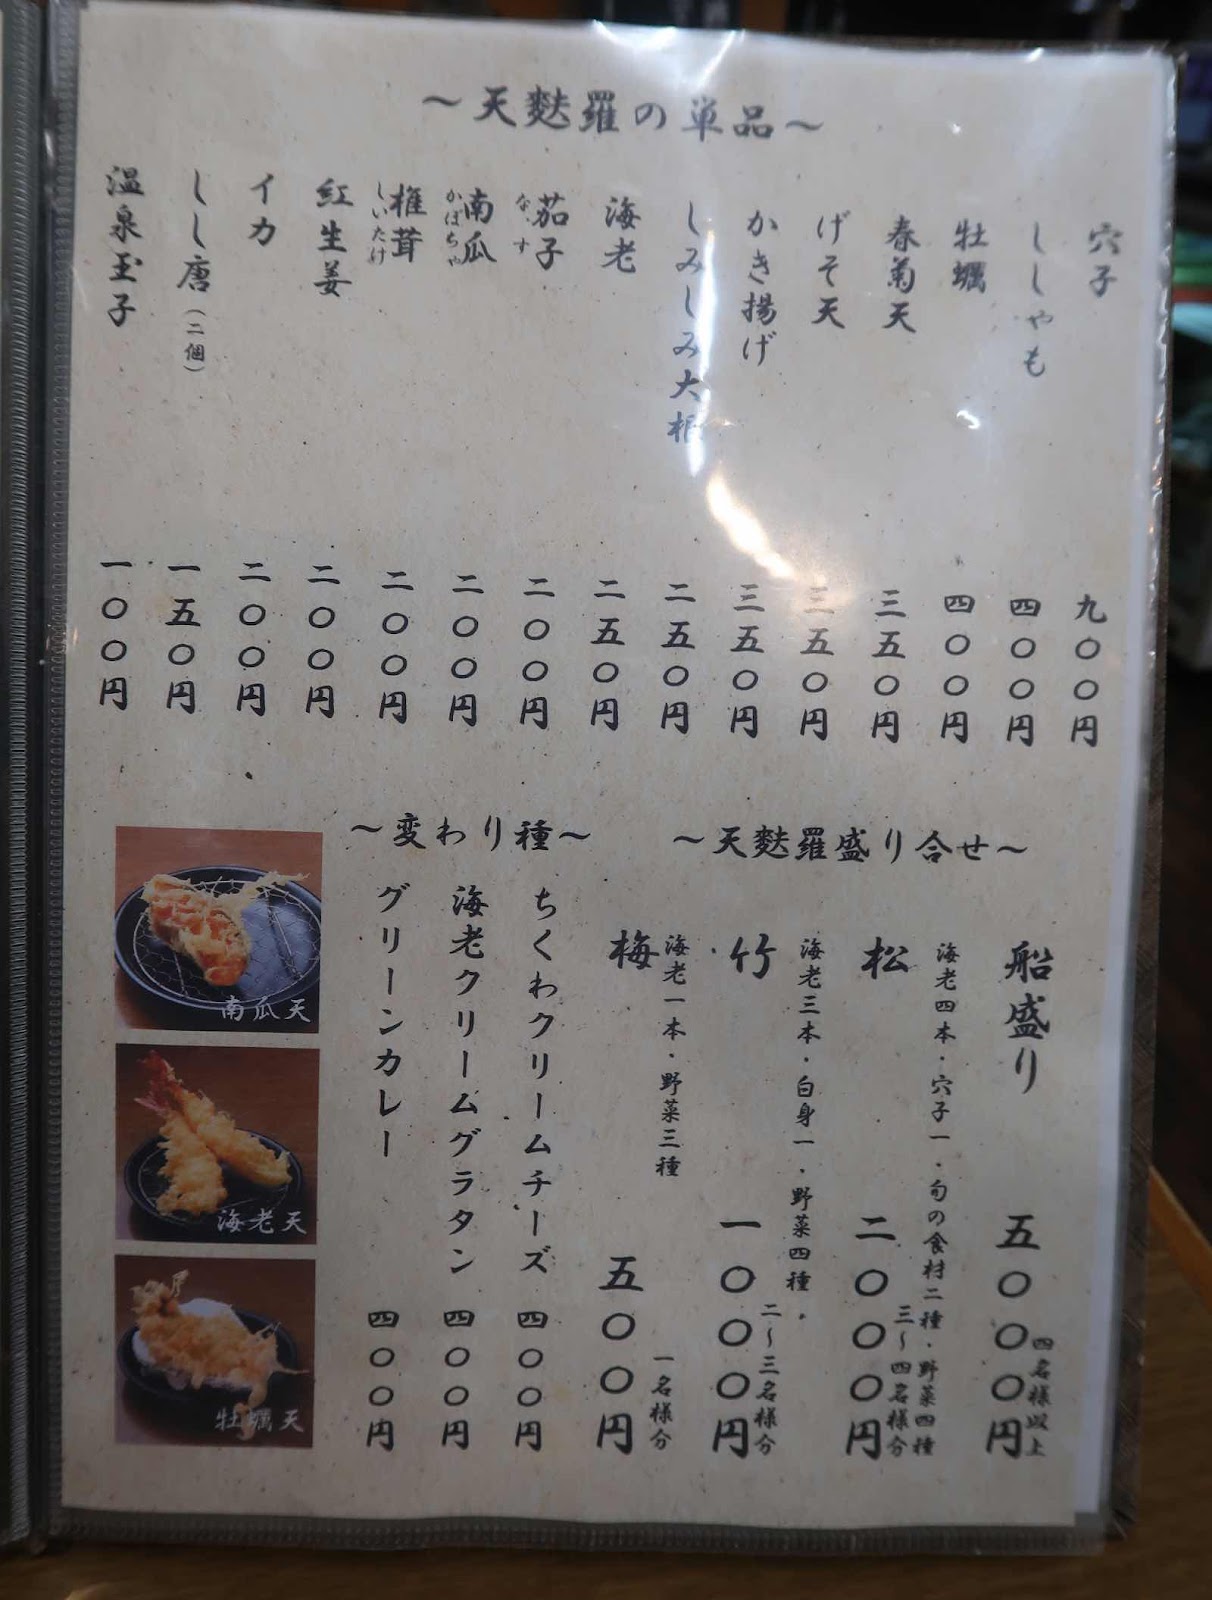 ～天麩羅の単品～
穴子
九〇〇円
ししゃも
四〇〇円
牡蠣
四〇〇円
春菊天
三五〇円
げそ天
三五〇円
かき揚げ
三五〇円
しみしみ大根
二五〇円
海老
二五〇円
茄子
なす
二〇〇円
南瓜
かぼちゃ
二〇〇円
椎茸
しいたけ
二〇〇円
紅生姜
二〇〇円
イカ
二〇〇円
しし唐（二個）
一五〇円
温泉玉子
一〇〇円
～天麩羅盛り合せ～
船盛り
五〇〇〇円
四名様以上
松
海老四本・穴子一・旬の食材二種・野菜四種
二〇〇〇円
三～四名様分
竹
海老三本・白身一・野菜四種・
一〇〇〇円
二～三名様分
梅
海老一本・野菜三種
五〇〇円
一名様分
～変わり種～
ちくわクリームチーズ
四〇〇円
海老クリームグラタン
四〇〇円
グリーンカレー
四〇〇円
南瓜天
海老天
牡蠣天